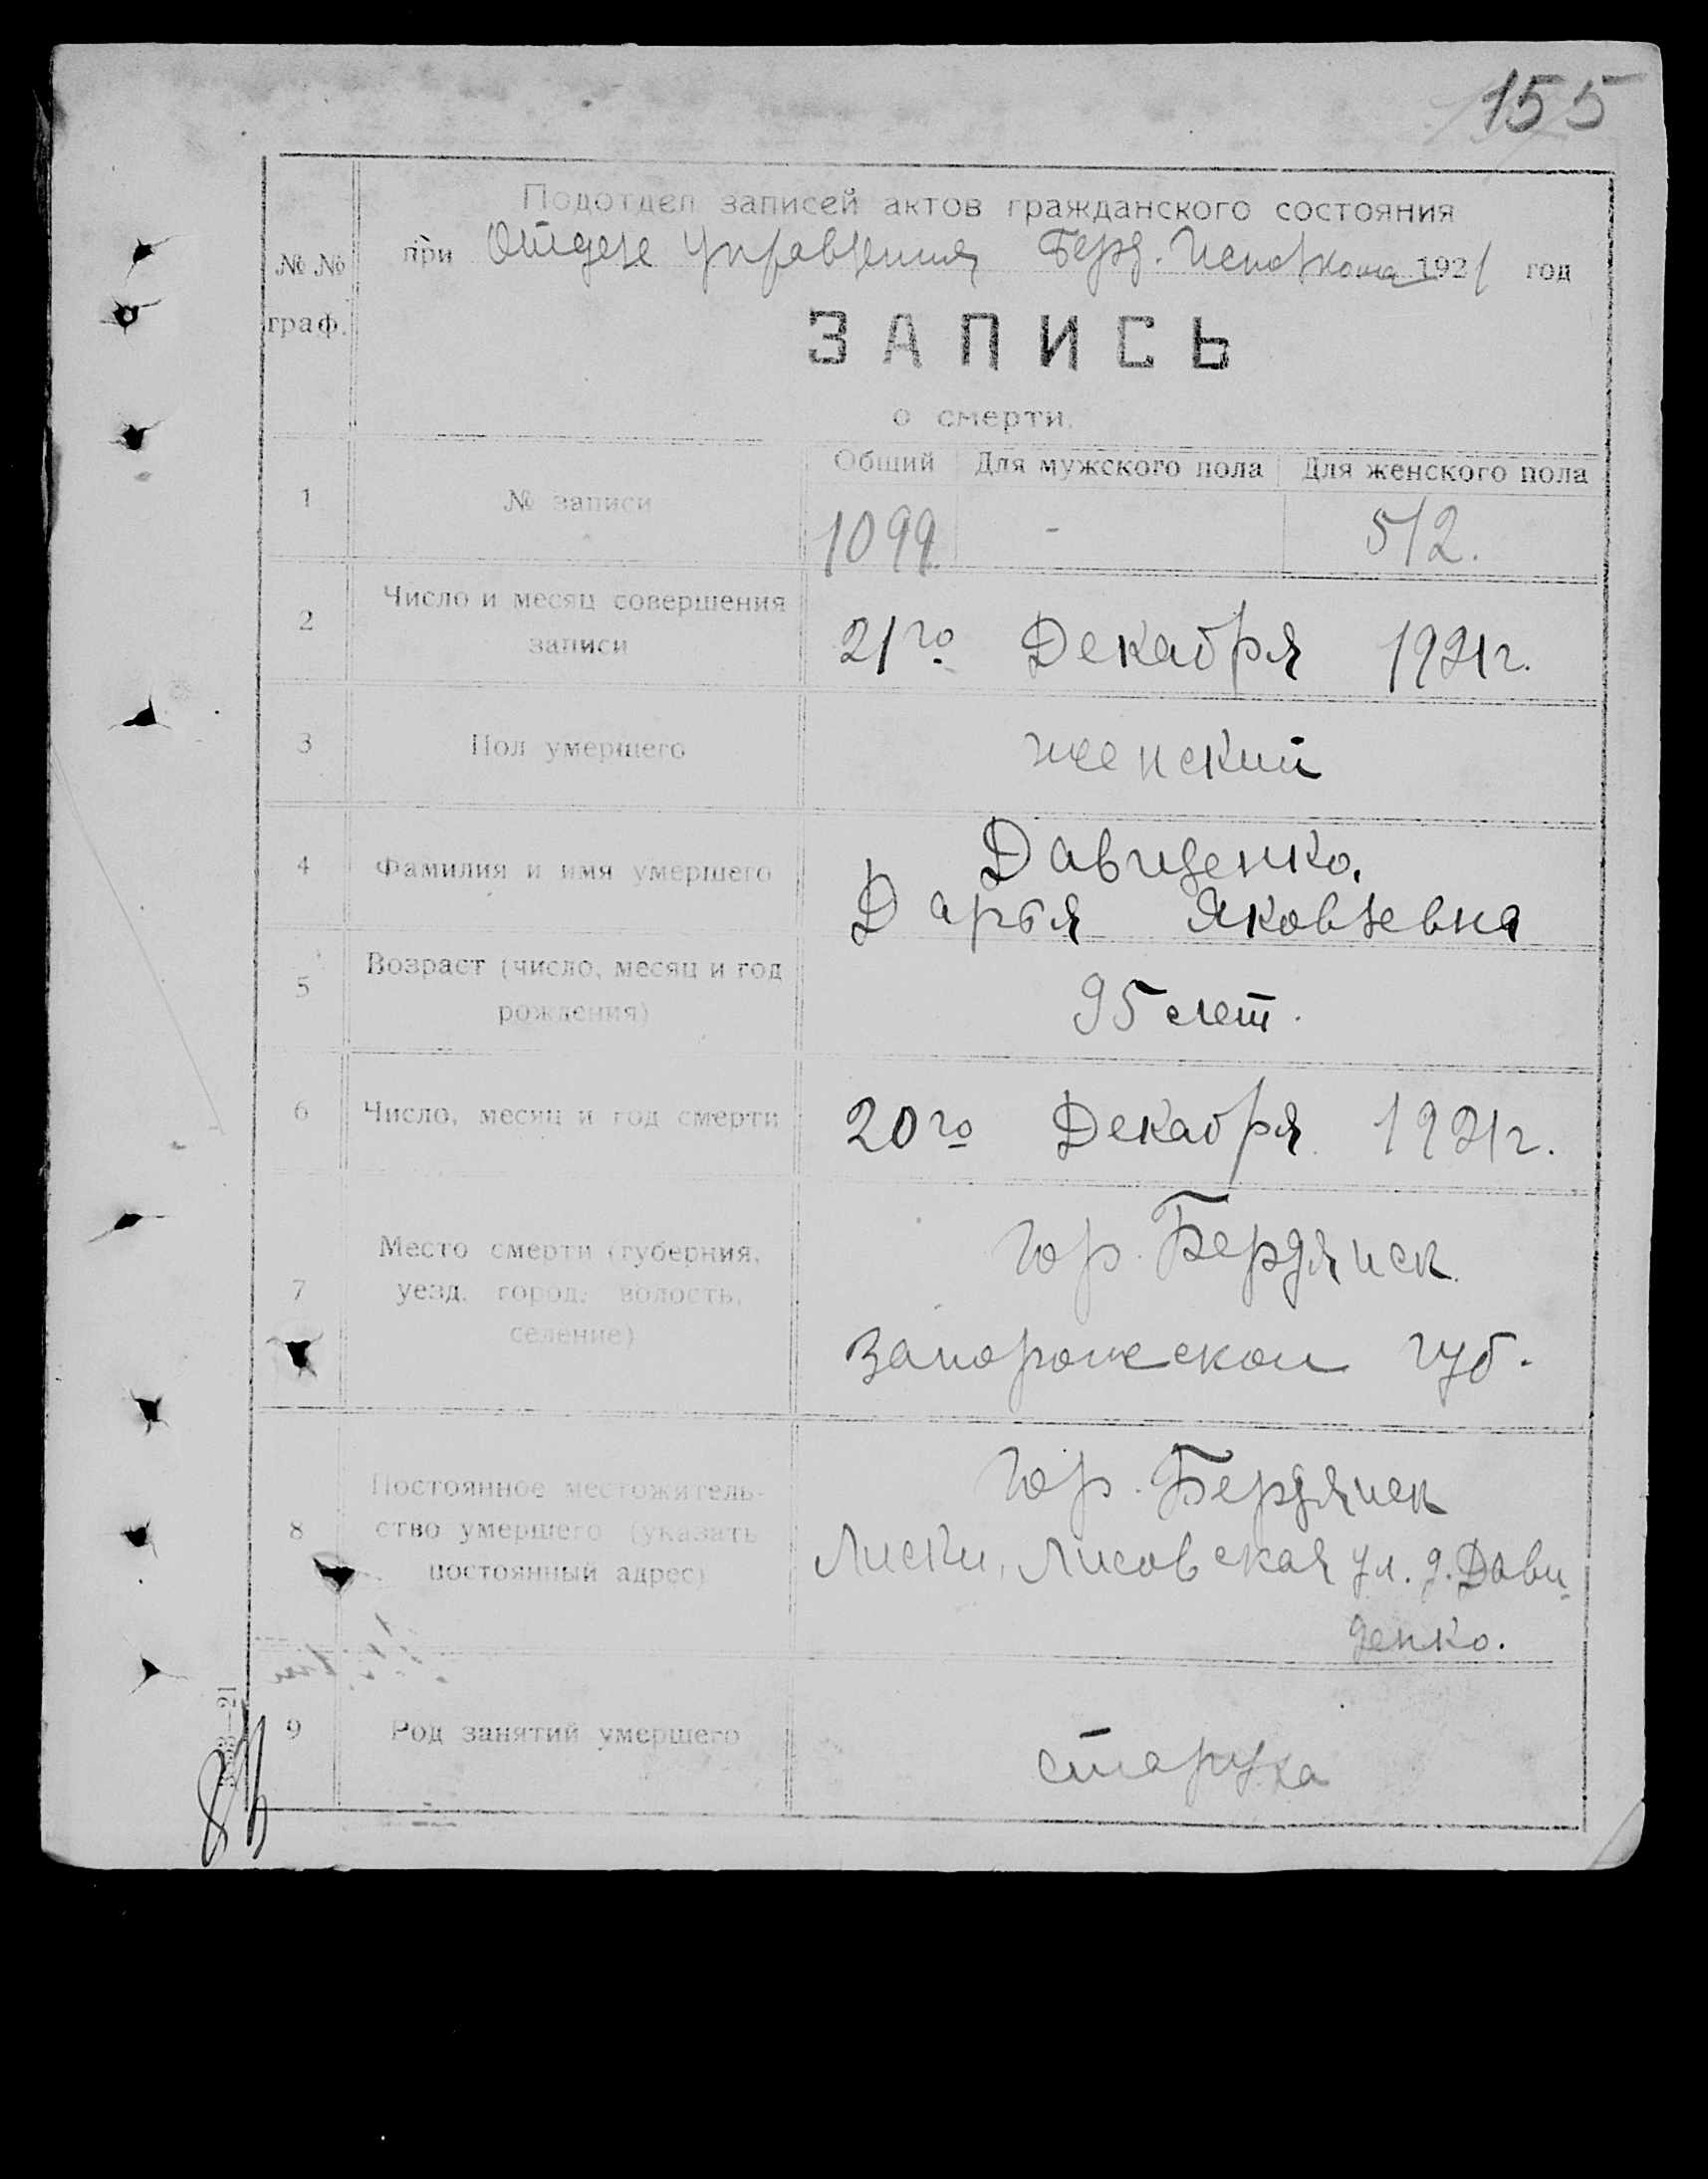 155
Подотдел записей актов гражданского состояния
при Отделе Управления Берд. Исполкома 1921 год
№ №
граф.
ЗАПИСЬ
о смерти.
Общий Для мужского пола Для женского пола
1 № записи 1099. - 512.
2 Число и месяц совершения
записи
21го Декабря 1921г.
3 Пол умершего женский
4 Фамилия и имя умершего
Давиденко,
Дарья Яковлевна
5 Возраст (число, месяц и год
рождения)
95 лет.
6 Число, месяц и год смерти 20го Декабря 1921г.
7 Место смерти (губерния,
уезд, город, волость,
селение)
гор. Бердянск
Запорожской губ.
8 Постоянное местожитель-
ство умершего (указать
постоянный адрес)
гор. Бердянск
Лиски, Лисовская ул. д. Дави-
денко.
9 Род занятий умершего старуха